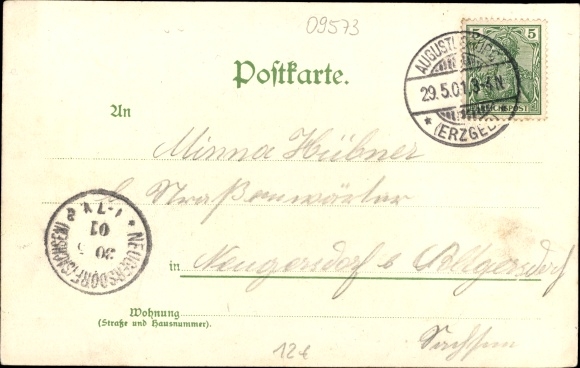 09573
5
REICHSPOST
AUGUSTUSBURG
29.5.01. 3-4 N
* (ERZGEB.)
Postkarte.
An
Minna Hübner
Straßenwärter
* NEUGERSDORF (SACHSEN)
30 5
01
1-7 V
in Neugersdorf b
Sachsen
Wohnung
(Straße und Hausnummer).
12€